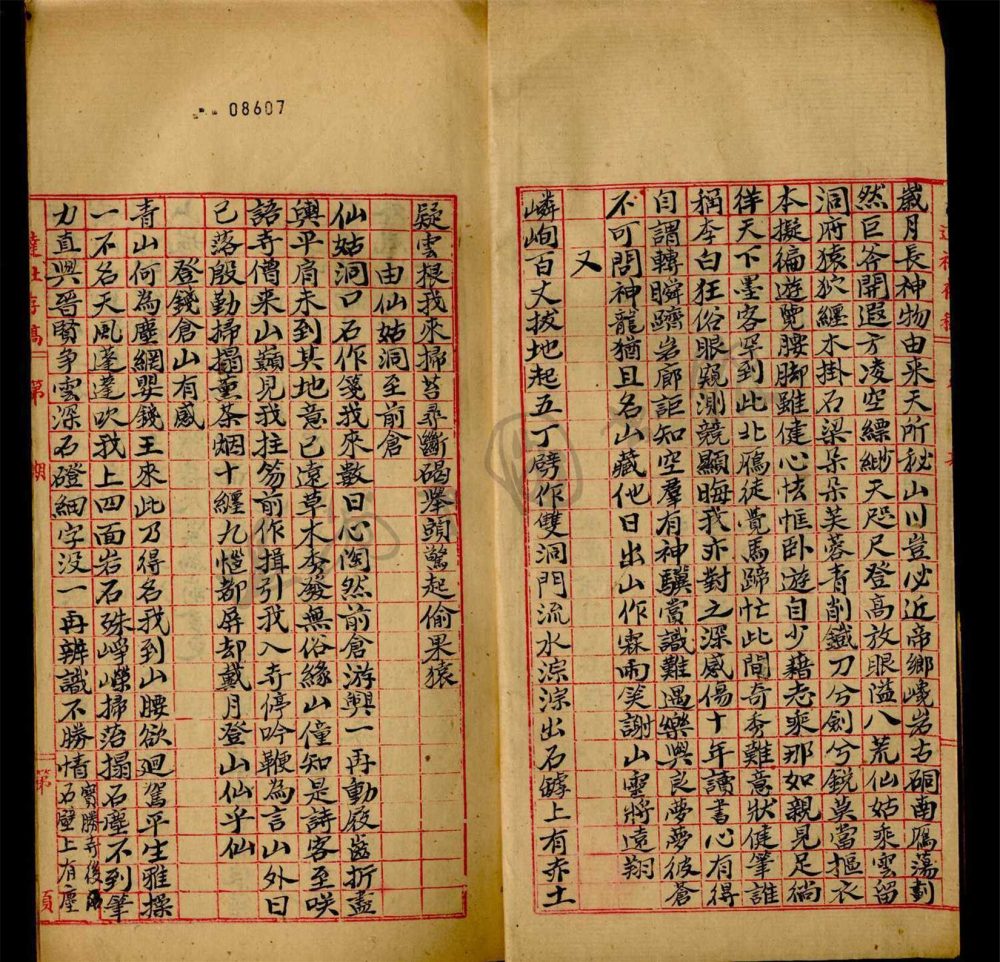 08607
歲月長神物由来天所秘山川豈必近帝鄉嶢岩古硐南鴈蕩劃
然巨谷開遐方凌空縹緲天咫尺登高放眼溢八荒仙姑乘雲留
洞府猿狖纏木掛石梁朵朵芙蓉青削鐵刀兮劍兮銳莫當摳衣
本擬徧遊覽腰脚雖健心怯恇卧遊自少藉志乘那如親見足徜
徉天下墨客罕到此北鴈徒覺馬蹄忙此間奇秀難意狀健筆誰
稱李白狂俗眼窺測競顯晦我亦對之深感傷十年讀書心有得
自謂轉瞬躋岩廊詎知空羣有神驥當識難遇樂興良夢夢彼蒼
不可問神龍猶且名山藏他日出山作霖雨笑謝山靈將遠翔
又
嶙峋百丈拔地起五丁劈作雙洞門流水淙淙出石罅上有赤土
疑雲根我来掃苔尋斷碣舉頭驚起偷果猿
由仙姑洞至前倉
仙姑洞口石作箋我来數日心陶然前倉游興一再動屐齒折盡
輿平肩未到其地意已遠草木秀發無俗緣山僮知是詩客至咲
語寺僧来山巔見我拄笏前作揖引我入寺停吟鞭為言山外日
已落殷勤掃榻薰茶烟十纏九惱都屏却戴月登山仙乎仙
登錢倉山有感
青山何為塵網嬰錢王來此乃得名我到山腰欲迴駕平生雅操
一不名天風蓬蓬吹我上四面岩石殊崢嶸掃苔搨石塵不到筆
力直與晉賢爭雲深石磴細字没一再辨識不勝情寶勝寺後
石壁上有塵
第 期
第 頁